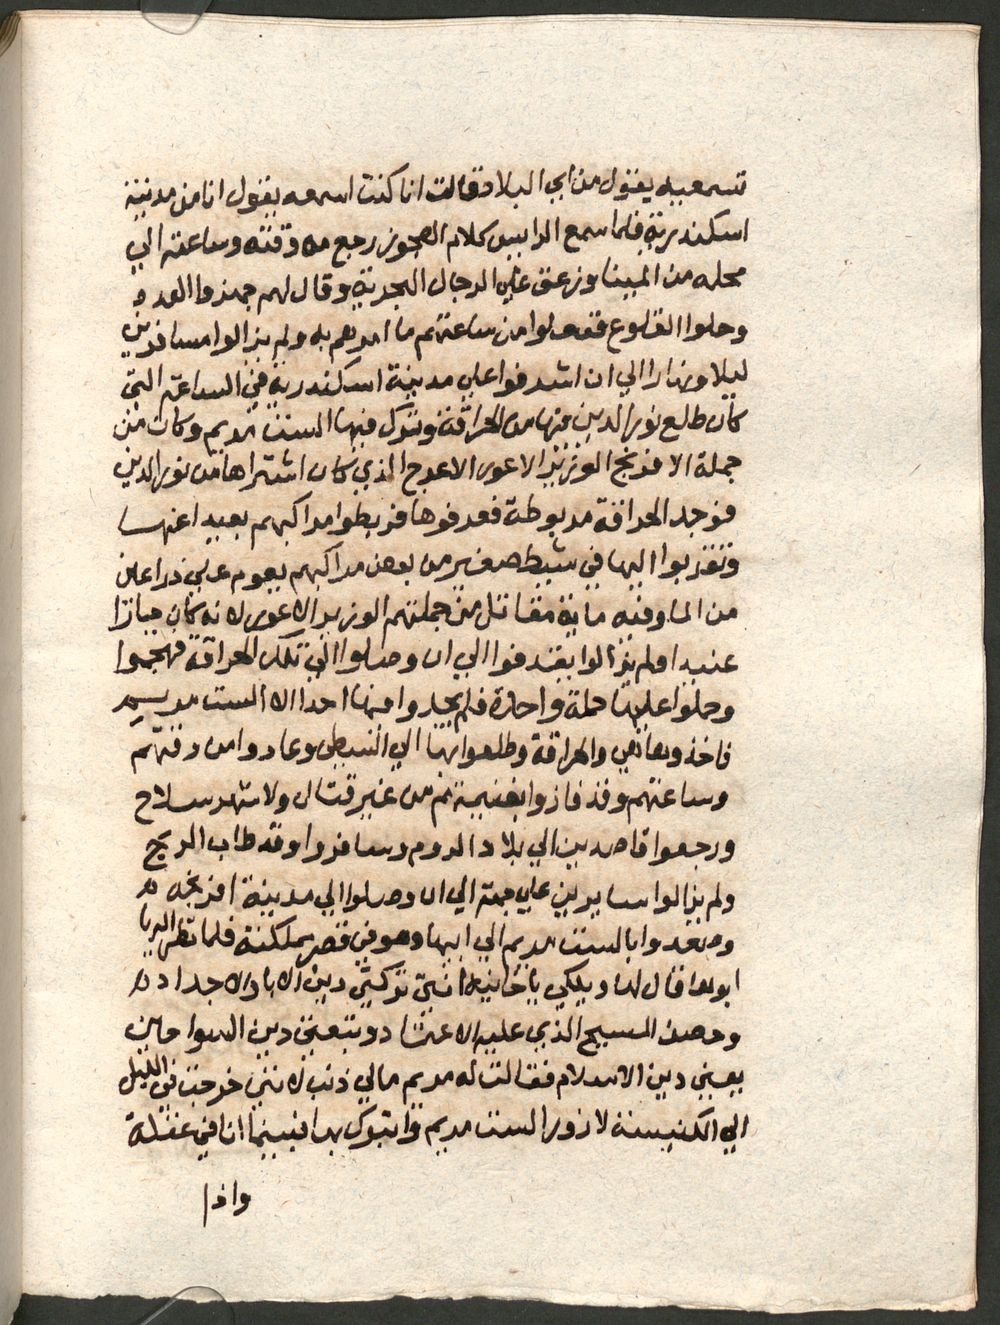 تسمعيه يقول من اي البلاد فقالت انا كنت اسمعه يقول انا من مدينة
اسكندرية فلما سمع الرايس كلام العجوز رجع من وقته وساعته الي
محله من المينا وزعق علي الرجال البحرية وقال لهم جهزوا العده
وحلوا القلوع ففعلوا من ساعتهم ما امرهم به ولم يزالوا مسافرين
ليلا ونهارا الي ان اشرفوا علي مدينة اسكندرية في الساعة التي
كان طلع نور الدين منها من الحراقة وترك فيها الست مريم وكان من
جملة الافرنج الوزير الاعور الاعرج الذي كان اشتراها من نور الدين
فوجد الحراقة مربوطة فعرفوها فربطوا مراكبهم بعيدا عنها
وتقربوا اليها في شيطي صغير من بعض مراكبهم يعوم علي ذراعين
من الما وفيه ماية مقاتل من جملتهم الوزير الاعور لانه كان جبارا
عنيدا ولم يزالوا يقدفوا الي ان وصلوا الي تلك الحراقة فهجموا
وحملوا عليها حملة واحدة فلم يجدوا فيها احدا الا الست مريم
فاخذوها هي والحراقة وطلعوا بها الي الشيطي وعادوا من وقتهم
وساعتهم وقد فازوا بغنيمتهم من غير قتال ولا شهر سلاح
ورجعوا قاصدين الي بلاد الروم وسافروا وقد طاب الريح
ولم يزالوا سايرين علي جهة الي ان وصلوا الي مدينة افرنجه
وصعدوا بالست مريم الي ابيها وهو في قصر مملكته فلما نظر اليها
ابوها قال لها ويلكي يا خاينه انتي تركتي دين الابا والاجداد
وحصن المسيح الذي عليه الاعتماد وتبعتي دين السواحين
يعني دين الاسلام فقالت له مريم مالي ذنب لانني خرجت في الليل
الي الكنيسة لازور الست مريم واتبرك بها فبينما انا في غفلة
واذا